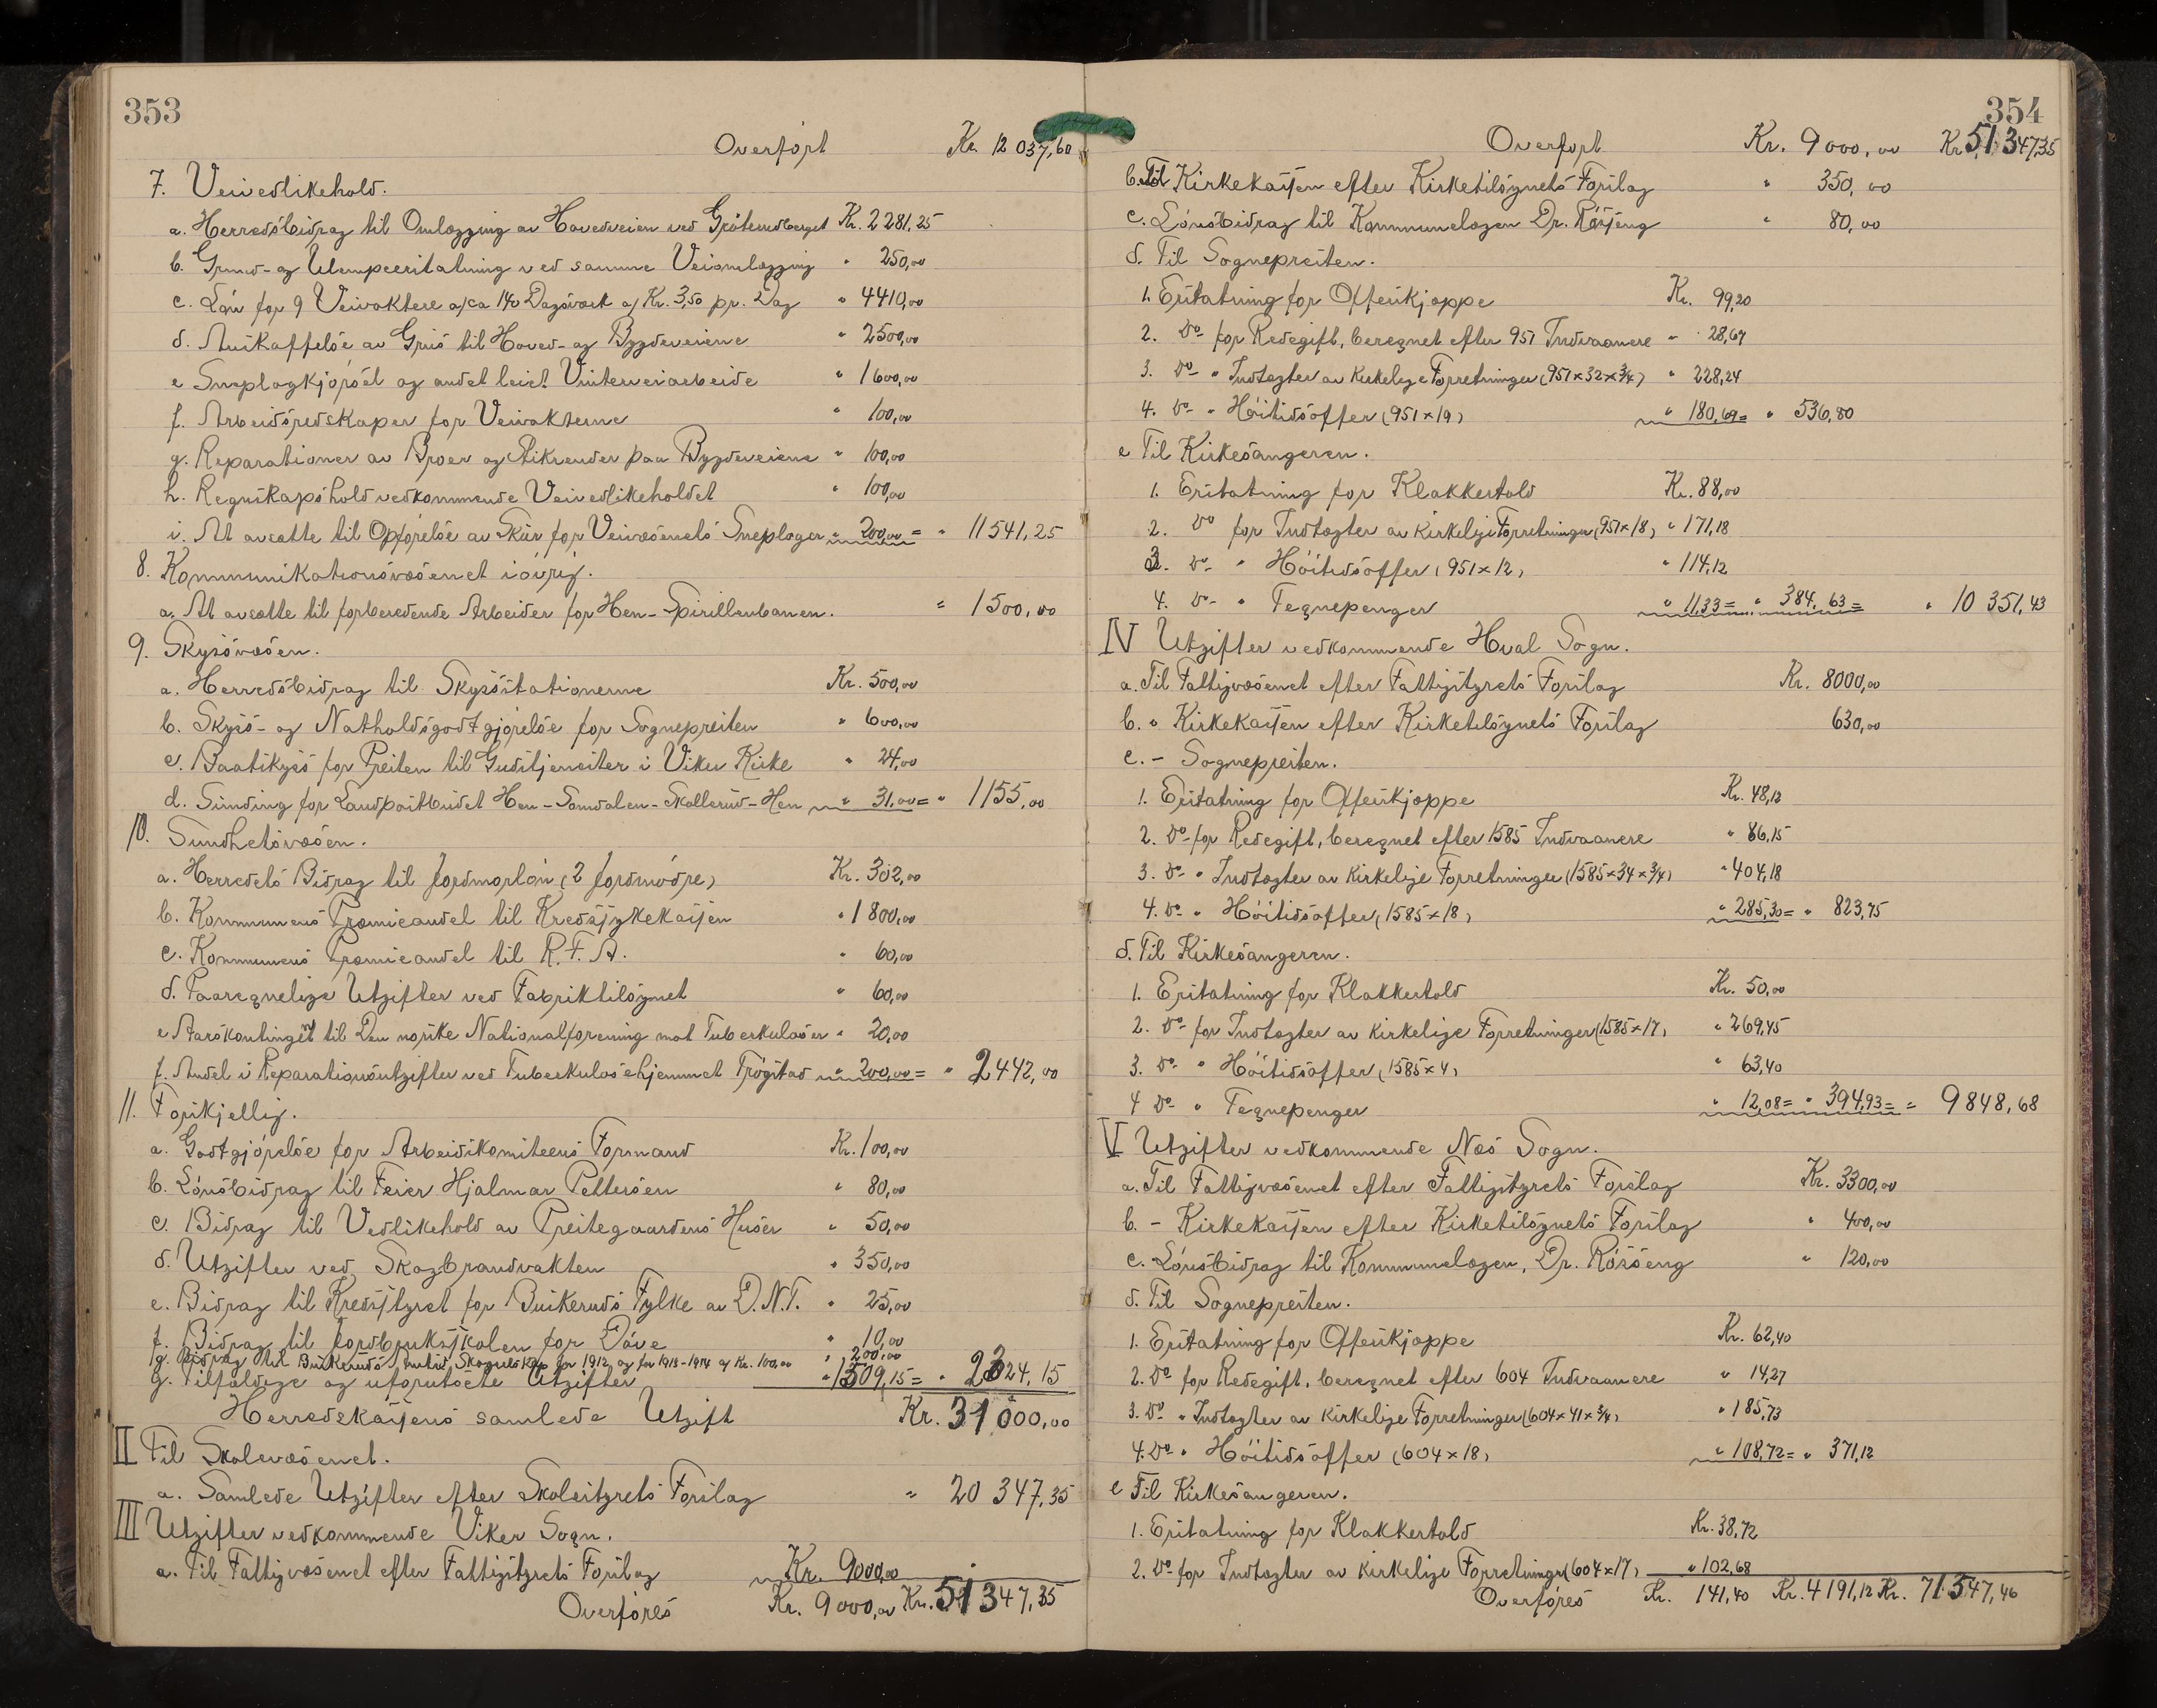 353
Overført Kr. 12 037,60
7. Veivedlikehold.
a. Herredsbidrag til Omlægging av Hovedveien ved Gröterudberget Kr. 2281,25
b. Grund- og Ulempeerstatning ved samme Veiomlægging " 250,00
c. Løn for 9 Veivoktere a/ca 140 Dagsværk a/ Kr. 3,50 pr. Dag " 4410,00
d. Anskaffelse av Grus til Hoved- og Bygdeveiene " 2500,00
e Sneplogkjørsel og andet leiet Vinterveiarbeide " 1600,00
f. Arbeidsredskaper for Veivokterne " 100,00
g. Reparationer av Broer og Stikrender paa Bygdeveiene " 100,00
h. Regnskapshold vedkommende Veivedlikeholdet " 100,00
i. At avsætte til Opførelse av Skur for Veivæsenets Sneploger " 200,00 = " 11541,25
8. Kommunikationsvæsenet iøvrig.
a. At avsætte til forberedende Arbeider for Hen-Spirillenbanen. " 1500,00
9. Skydsvæsen.
a. Herredsbidrag til Skydsstationerne Kr. 500,00
b. Skyds- og Natholdsgodtgjørelse for Sognepresten " 600,00
c. Baatskyds for Presten til Gudstjenester i Viker Kirke " 24,00
d. Sinding for Landpostbudet Hen-Somdalen-Skollerud-Hen " 31,00 = " 1155,00
10. Sundhetsvæsen.
a. Herredets Bidrag til Jordmorløn (2 Jordmødre) Kr. 302,00
b. Kommunens Præmieandel til Kredssykekassen " 1800,00
c. Kommunens Præmieandel til R.F.A. " 60,00
d. Paaregnelige Utgifter ved Fabriktilsynet " 60,00
e Aarskontingent til Den norske Nationalforening mot Tuberkulosen " 20,00
f. Andel i Reparationsutgifter ved Tuberkulosehjemmet Frøgstad " 200,00 = " 2442,00
11. Forskjellig.
a. Godtgjørelse for Arbeidskomiteens Formand Kr. 100,00
b. Lønsbidrag til Feier Hjalmar Pettersen " 80,00
c. Bidrag til Vedlikehold av Prestegaardens Huser " 50,00
d. Utgifter ved Skogbrandvakten " 350,00
e. Bidrag til Kredsstyret for Buskeruds Fylke av D.N.T. " 25,00
f. Bidrag til Jordbruksskolen for Døve " 10,00
g. Bidrag til Buskeruds Skogselskap for 1912 og for 1913-1914 a/ Kr. 100,00 " 200,00
g. Tilfældige og uforutsete Utgifter " 1509,15 = " 2324,15
Herredskassens samlede Utgift Kr. 31000,00
II Til Skolevæsenet.
a. Samlede Utgifter efter Skolestyrets Forslag " 20 347,35
III Utgifter vedkommende Viker Sogn.
a. Til Fattigvæsenet efter Fattigstyrets Forslag Kr. 9000,00
Overføres Kr. 9000,00 Kr. 51347,35
354
Overført Kr. 9000,00 Kr. 51347,35
b. Til Kirkekassen efter Kirketilsynets Forslag " 350,00
c. Lønsbidrag til Kommunelægen Dr. Røsseng " 80,00
d. Til Sognepresten.
1. Erstatning for Offerskjæppe Kr. 99,20
2. Do for Redegift, beregnet efter 951 Indvaanere " 28,67
3. Do " Indtægter av kirkelige Forretninger (951×32×3/4) " 228,24
4. Do " Høitidsoffer (951×19) " 180,69 = " 536,80
e Til Kirkesangeren.
1. Erstatning for Klokkertold Kr. 88,00
2. Do for Indtægter av kirkelige Forretninger (951×18) " 171,18
3. Do " Høitidsoffer (951×12) " 114,12
4. Do " Tegnepenger " 11,33 = " 384,63 = " 10 351,43
IV Utgifter vedkommende Hval Sogn.
a. Til Fattigvæsenet efter Fattigstyrets Forslag Kr. 8000,00
b. " Kirkekassen efter Kirketilsynets Forslag 630,00
c. - Sognepresten.
1. Erstatning for Offerskjæppe Kr. 48,12
2. Do for Redegift, beregnet efter 1585 Indvaanere " 86,15
3. Do " Indtægter av kirkelige Forretninger (1585×34×3/4) " 404,18
4. Do " Høitidsoffer (1585×18) " 285,30 = " 823,75
d. Til Kirkesangeren.
1. Erstatning for Klokkertold Kr. 50,00
2. Do for Indtægter av kirkelige Forretninger (1585×17) " 269,45
3. Do " Høitidsoffer (1585×4) " 63,40
4 Do " Tegnepenger " 12,08 = " 394,93 = " 9848,68
V Utgifter vedkommende Næs Sogn.
a. Til Fattigvæsenet efter Fattigstyrets Forslag Kr. 3300,00
b. - Kirkekassen efter Kirketilsynets Forslag " 400,00
c. Lønsbidrag til Kommunelægen, Dr. Røsseng " 120,00
d. Til Sognepresten.
1. Erstatning for Offerskjæppe Kr. 62,40
2. Do for Redegift, beregnet efter 604 Indvaanere " 14,27
3. Do " Indtægter av kirkelige Forretninger (604×41×3/4) " 185,73
4. Do " Høitidsoffer (604×18) " 108,72 = " 371,12
e Til Kirkesangeren.
1. Erstatning for Klokkertold Kr. 38,72
2. Do for Indtægter av kirkelige Forretninger (604×17) " 102,68
Overføres Kr. 141,40 Kr. 4191,12 Kr. 71547,46